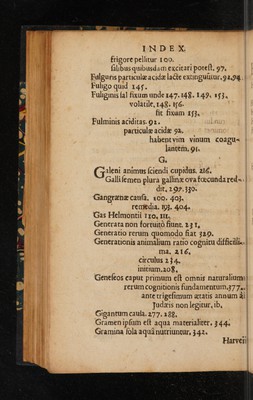 INDEX.
frigore pellitur 100.
salibus quibusdam excitari potest. 97.
Fulguris particulæ acidæ lacte extinguntur. 92.94
Fuligo quid 145.
Fuliginis sal fixum unde 147.148. 149. 153.
volatile. 148. 156.
fit fixum 153.
Fulminis aciditas. 92.
particulæ acidæ 92.
habent vim vinum coagu-
lantem. 95.
G.
Galeni animus sciendi cupidus. 216.
Galli semen plura gallinæ ova fœcunda red-
dit. 297. 330.
Gangrænæ causa. 100. 403.
remedia. 193. 404.
Gas Helmontii 110, 111.
Generata non fortuitò fiunt. 231.
Generatio rerum quomodo fiat 329.
Generationis animalium ratio cognitu difficilli-
ma. 216.
circulus 234.
initium. 208.
Geneseos caput primum est omnis naturalium
rerum cognitionis fundamentum. 377.
ante trigesimum ætatis annum à
Judæis non legitur. ib.
Gigantum causa. 277. 288.
Gramen ipsum est aqua materialiter. 344.
Gramina sola aquâ nutriuntur. 342.
Harveii